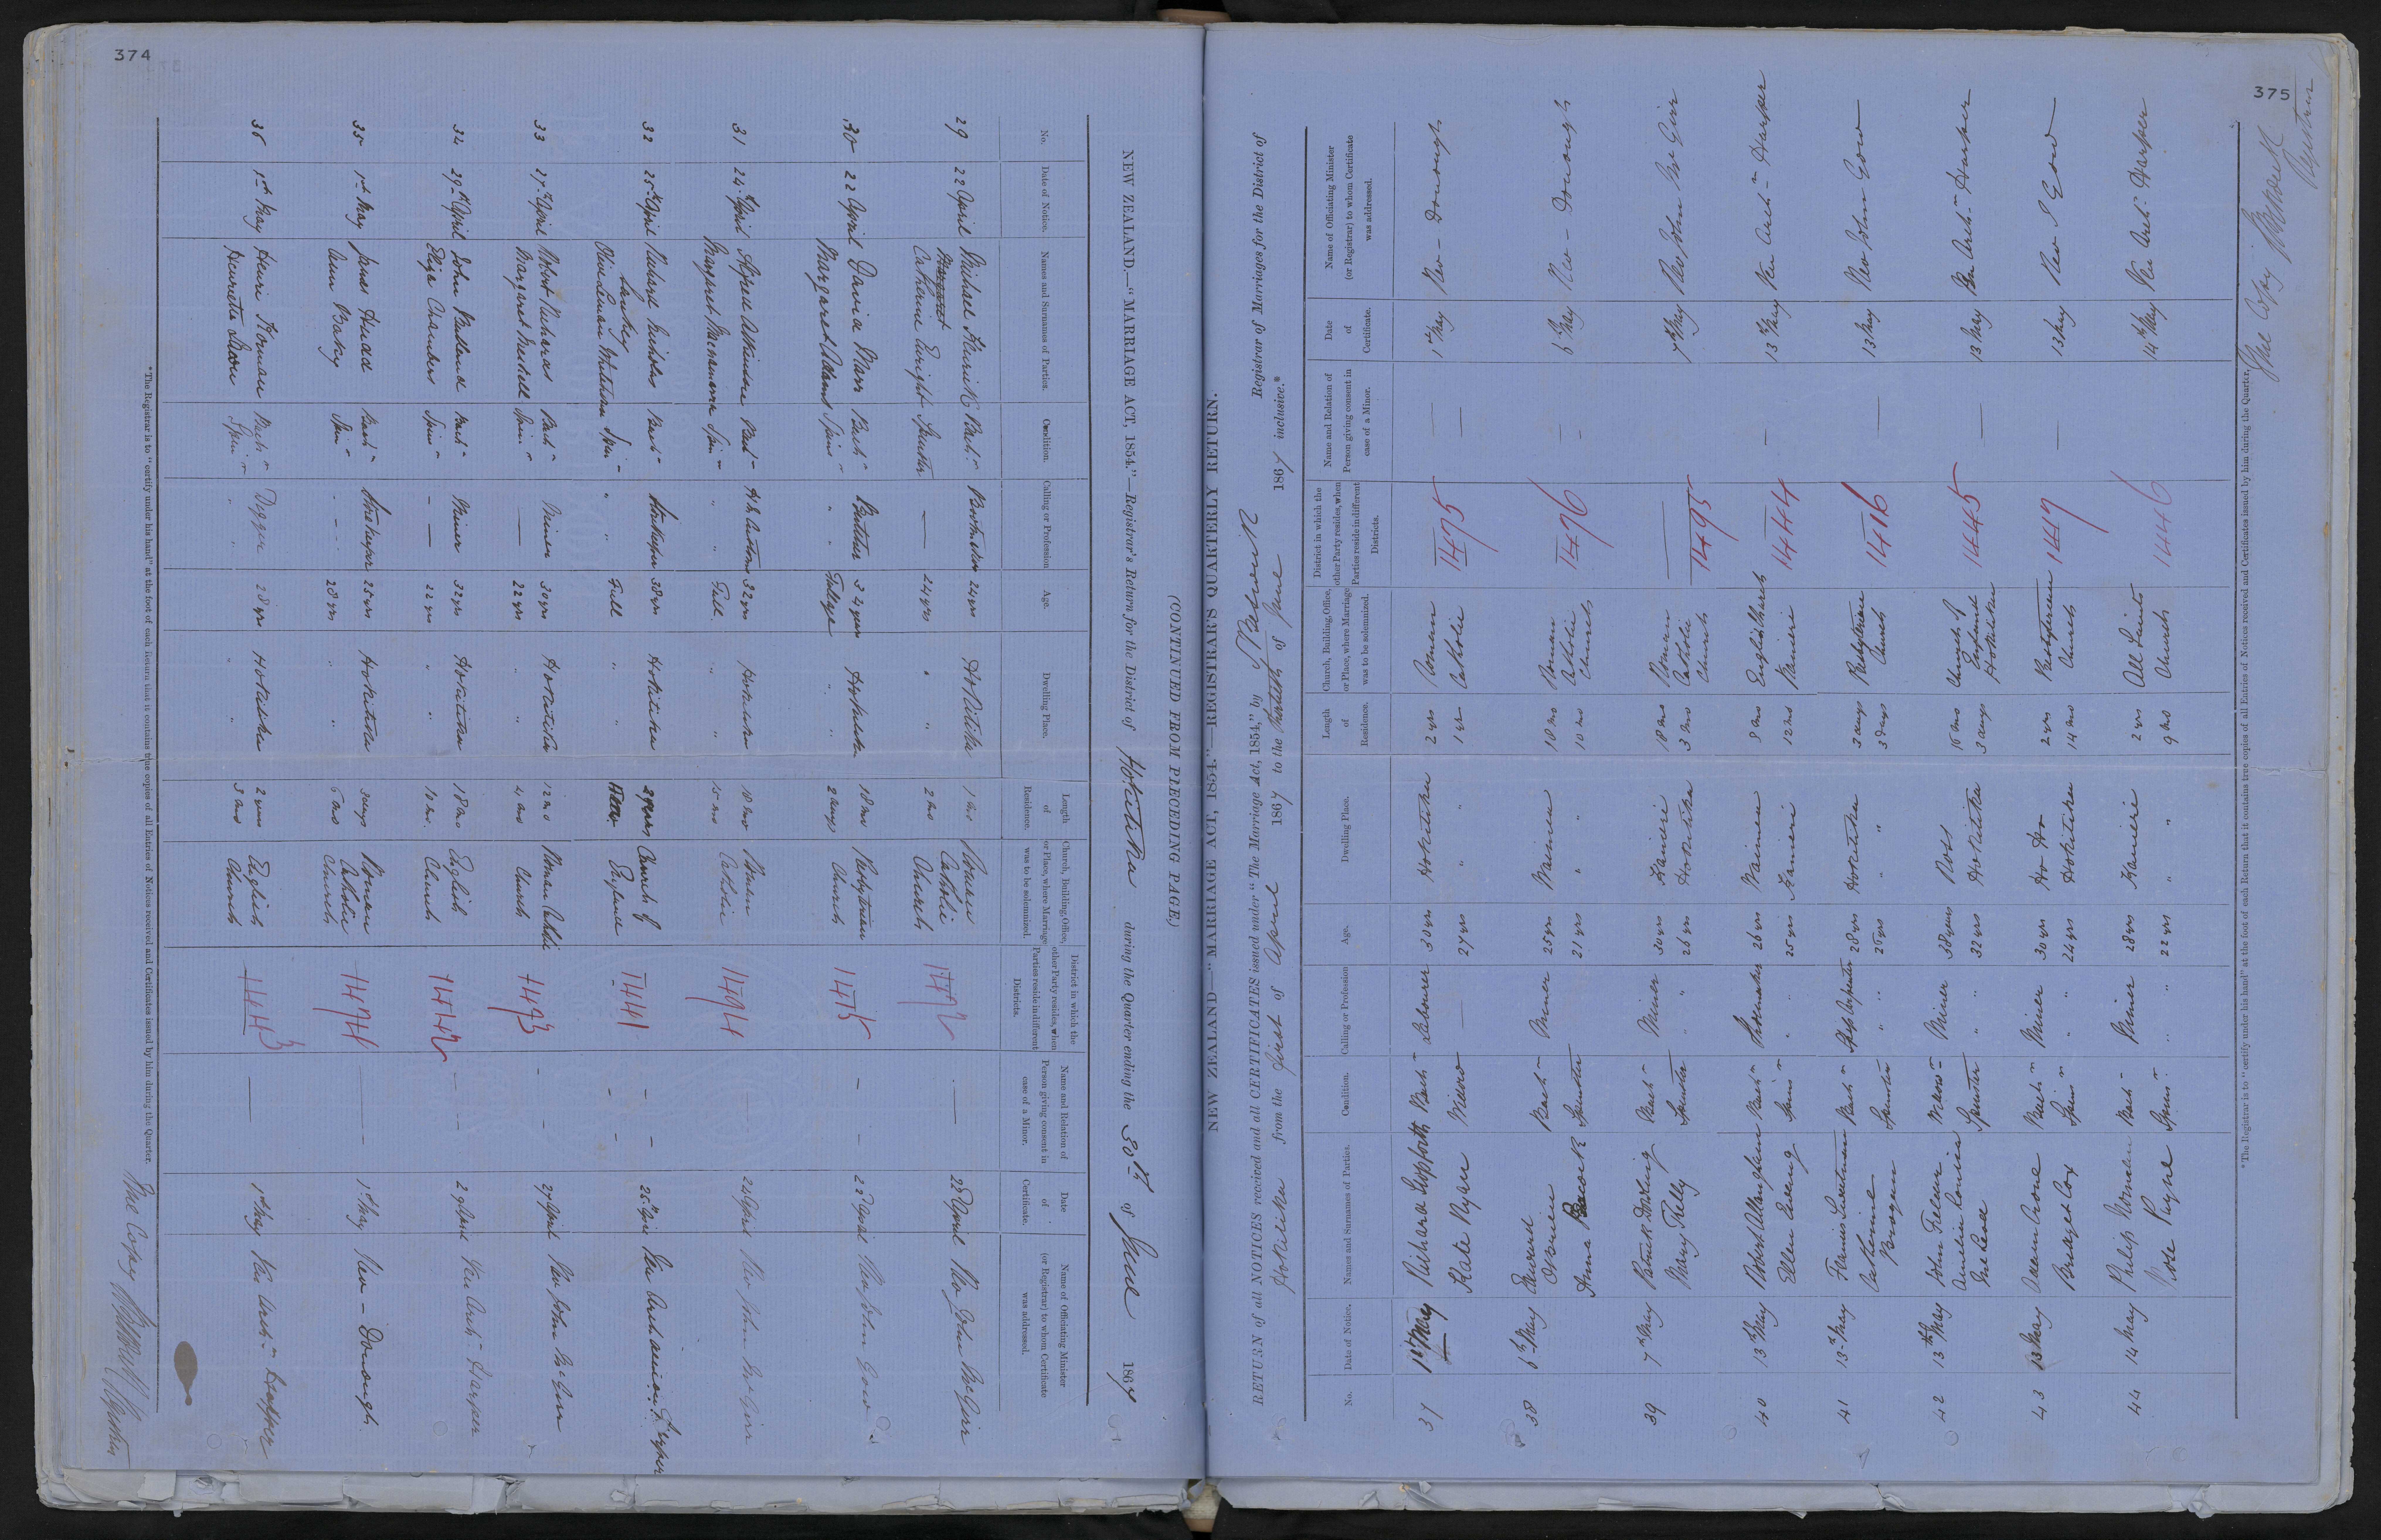 374
(CONTINUED FROM PRECEDING PAGE.)
NEW ZEALAND.—"MARRIAGE ACT, 1854."—Registrar's Return for the District of Hokitika during the Quarter ending the 30th of June 1867
No. Date of Notice. Names and Surnames of Parties. Condition. Calling or Profession Age. Dwelling Place. Length of Residence. Church, Building, Office, or Place, where Marriage was to be solemnized. District in which the other Party resides, when Parties reside in different Districts. Name and Relation of Person giving consent in case of a Minor. Date of Certificate. Name of Officiating Minister (or Registrar) to whom Certificate was addressed.
29 22 April Michael 24 yrs Hokitika 1 mo Roman 1472 22 April Rev John McGirr
Margaret Catherine Enright Spinster — 24 yrs " 2 mos Catholic Church —
30 22 April David Marr Bachr Butcher 34 years Hokitika 18 mo Presbyterian 1415 – 22 April Rev John Gow
Margaret Adams Spinr " Full age " 2 days Church –
31 24th April Alfred Atkinson Bachr 32 yrs Hokitika 18 mos Roman 1494 24 April Rev John McGirr
Margaret Spinr " Full " 15 mos Catholic
32 25th April Richard Nicholas Bachr Storekeeper 38 yrs Hokitika 2 years Church of 1441 – – 25th Apr Ven Archdeacon Harper
Lanky
Olivia Spinr " Full " England – –
33 27th April Robert Richards Bachr Miner 30 yrs Hokitika 12 mo Roman Catholic 1493 – 27 April Rev John McGirr
Margaret Spinr — 22 yrs " 4 mos Church –
34 29th April John Bachr Miner 32 yrs Hokitika 18 mo English 1442 – 29 April Ven Archn Harper
Eliza Chambers Spinr — 22 yrs " 10 mo. Church –
35 1st May James Hudd Bachr Storekeeper 25 yrs Hokitika 3 days Roman 1474 — 1st May Rev – Donough
Ann Spinr – – 28 yrs " 6 mos Catholic Church
36 1st May Henri Bachr Digger 28 yrs Hokitika 2 years English 1443 — 1st May Ven Archn Harper
Henrietta Spinr " " " 3 mos Church
*The Registrar is to "certify under his hand" at the foot of each Return that it contains true copies of all Entries of Notices received and Certificates issued by him during the Quarter.
True Copy Registrar
375
NEW ZEALAND—"MARRIAGE ACT, 1854."—REGISTRAR'S QUARTERLY RETURN.
RETURN of all NOTICES received and all CERTIFICATES issued under "The Marriage Act, 1854," by Registrar of Marriages for the District of
Hokitika from the first of April 1867 to the thirtieth of June 1867 inclusive.*
No. Date of Notice. Names and Surnames of Parties. Condition. Calling or Profession Age. Dwelling Place. Length of Residence. Church, Building, Office, or Place, where Marriage was to be solemnized. District in which the other Party resides, when Parties reside in different Districts. Name and Relation of Person giving consent in case of a Minor. Date of Certificate. Name of Officiating Minister (or Registrar) to whom Certificate was addressed.
37 1st May Richard Bachr Labourer 30 yrs Hokitika 2 yrs Roman 1475 — 1st May Rev – Donough
Kate Ryan Widow — 27 yrs " 1 yr Catholic —
38 6th May Edward Bachr Miner 25 yrs Waimea 18 mo Roman 1476 – 6th May Rev – Donough
Osmien
Anna Spinster 21 yrs " 10 mo Catholic Church –
39 7th May Patrick Bachr Miner 30 yrs Kanieri 18 mo Roman 1495 7th May Rev John McGirr
Mary Spinster " 26 yrs Hokitika 3 mo Catholic Church
40 13th May Robert Allingham Bachr Shoemaker 26 yrs Waimea 8 mo English Church 1444 – 13th May Ven Archn Harper
Ellen Spinr " 25 yrs Kanieri 12 mo Kanieri
41 13th May Francis Sweetman Bachr Ship Carpenter 28 yrs Hokitika 3 days Presbyterian 1416 — 13 May Rev John Gow
Catherine Brogan Spinster " 26 yrs " 3 days Church
42 13th May John Widowr Miner 38 years Ross 16 mo Church of 1445 — 13 May Ven Archn Harper
Amelia Louisa Spinster " 32 yrs Hokitika 3 days England Hokitika
43 13 May Owen Crone Bachr Miner 30 yrs Ho Ho 2 yrs Presbyterian 1417 — 13 May Rev J Gow
Bridget Cox Spinr " 24 yrs Hokitika 14 mo Church
44 14 May Philip Bachr Miner 28 yrs Kanieri 2 yrs All Saints 1446 14th May Ven Archn Harper
Rose Payne Spinr " 22 yrs " 9 mo Church
*The Registrar is to "certify under his hand" at the foot of each Return that it contains true copies of all Entries of Notices received and Certificates issued by him during the Quarter.
True Copy
Registrar